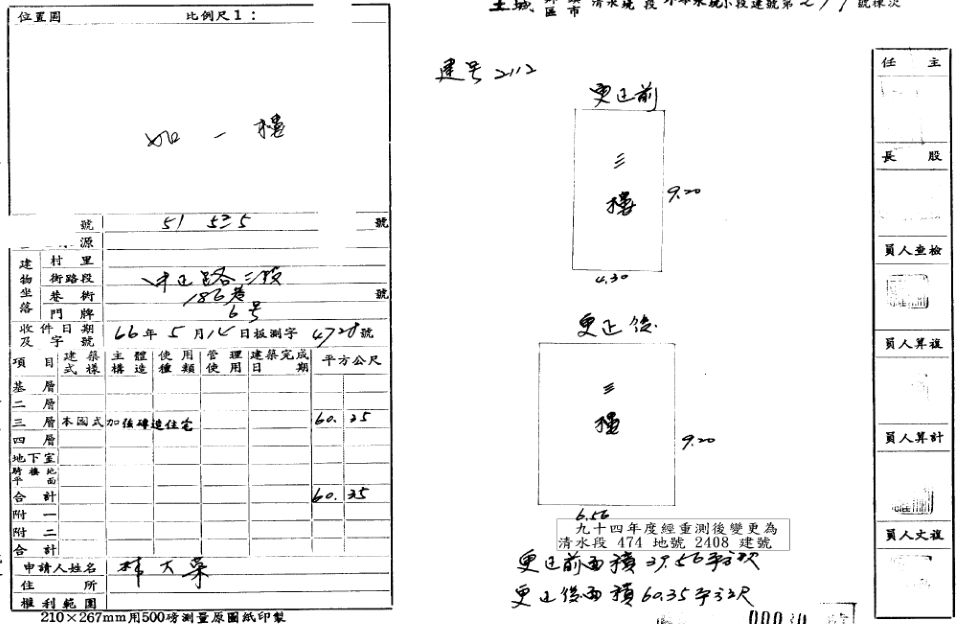 位置圖 比例尺1：
如一樓
號 51 535 號
源
建物坐落
村里
街路段 中正路三段
巷衖 186巷 號
門牌 6号
收件日期及字號 66年5月14日板測字4728號
項目 建築式樣 主體構造 使用種類 管理使用 建築完成日期 平方公尺
基層
二層
三層 本國式 加強磚造 住宅 60.35
四層
地下室
騎樓地平面
合計 60.35
附一
附二
合計
申請人姓名 林大榮
住所
權利範圍
210×267mm用500磅測量原圖紙印製
土城 區市 清水坑段 小段建號第 號棟次
建号 2112
更正前
三樓
9.20
4.30
更正後
三樓
9.20
6.56
九十四年度經重測後變更為
清水段 474 地號 2408 建號
更正前面積 39.56平方公尺
更正後面積 60.35平方公尺
任主
長股
員人查檢
員人算複
員人算計
員人丈複